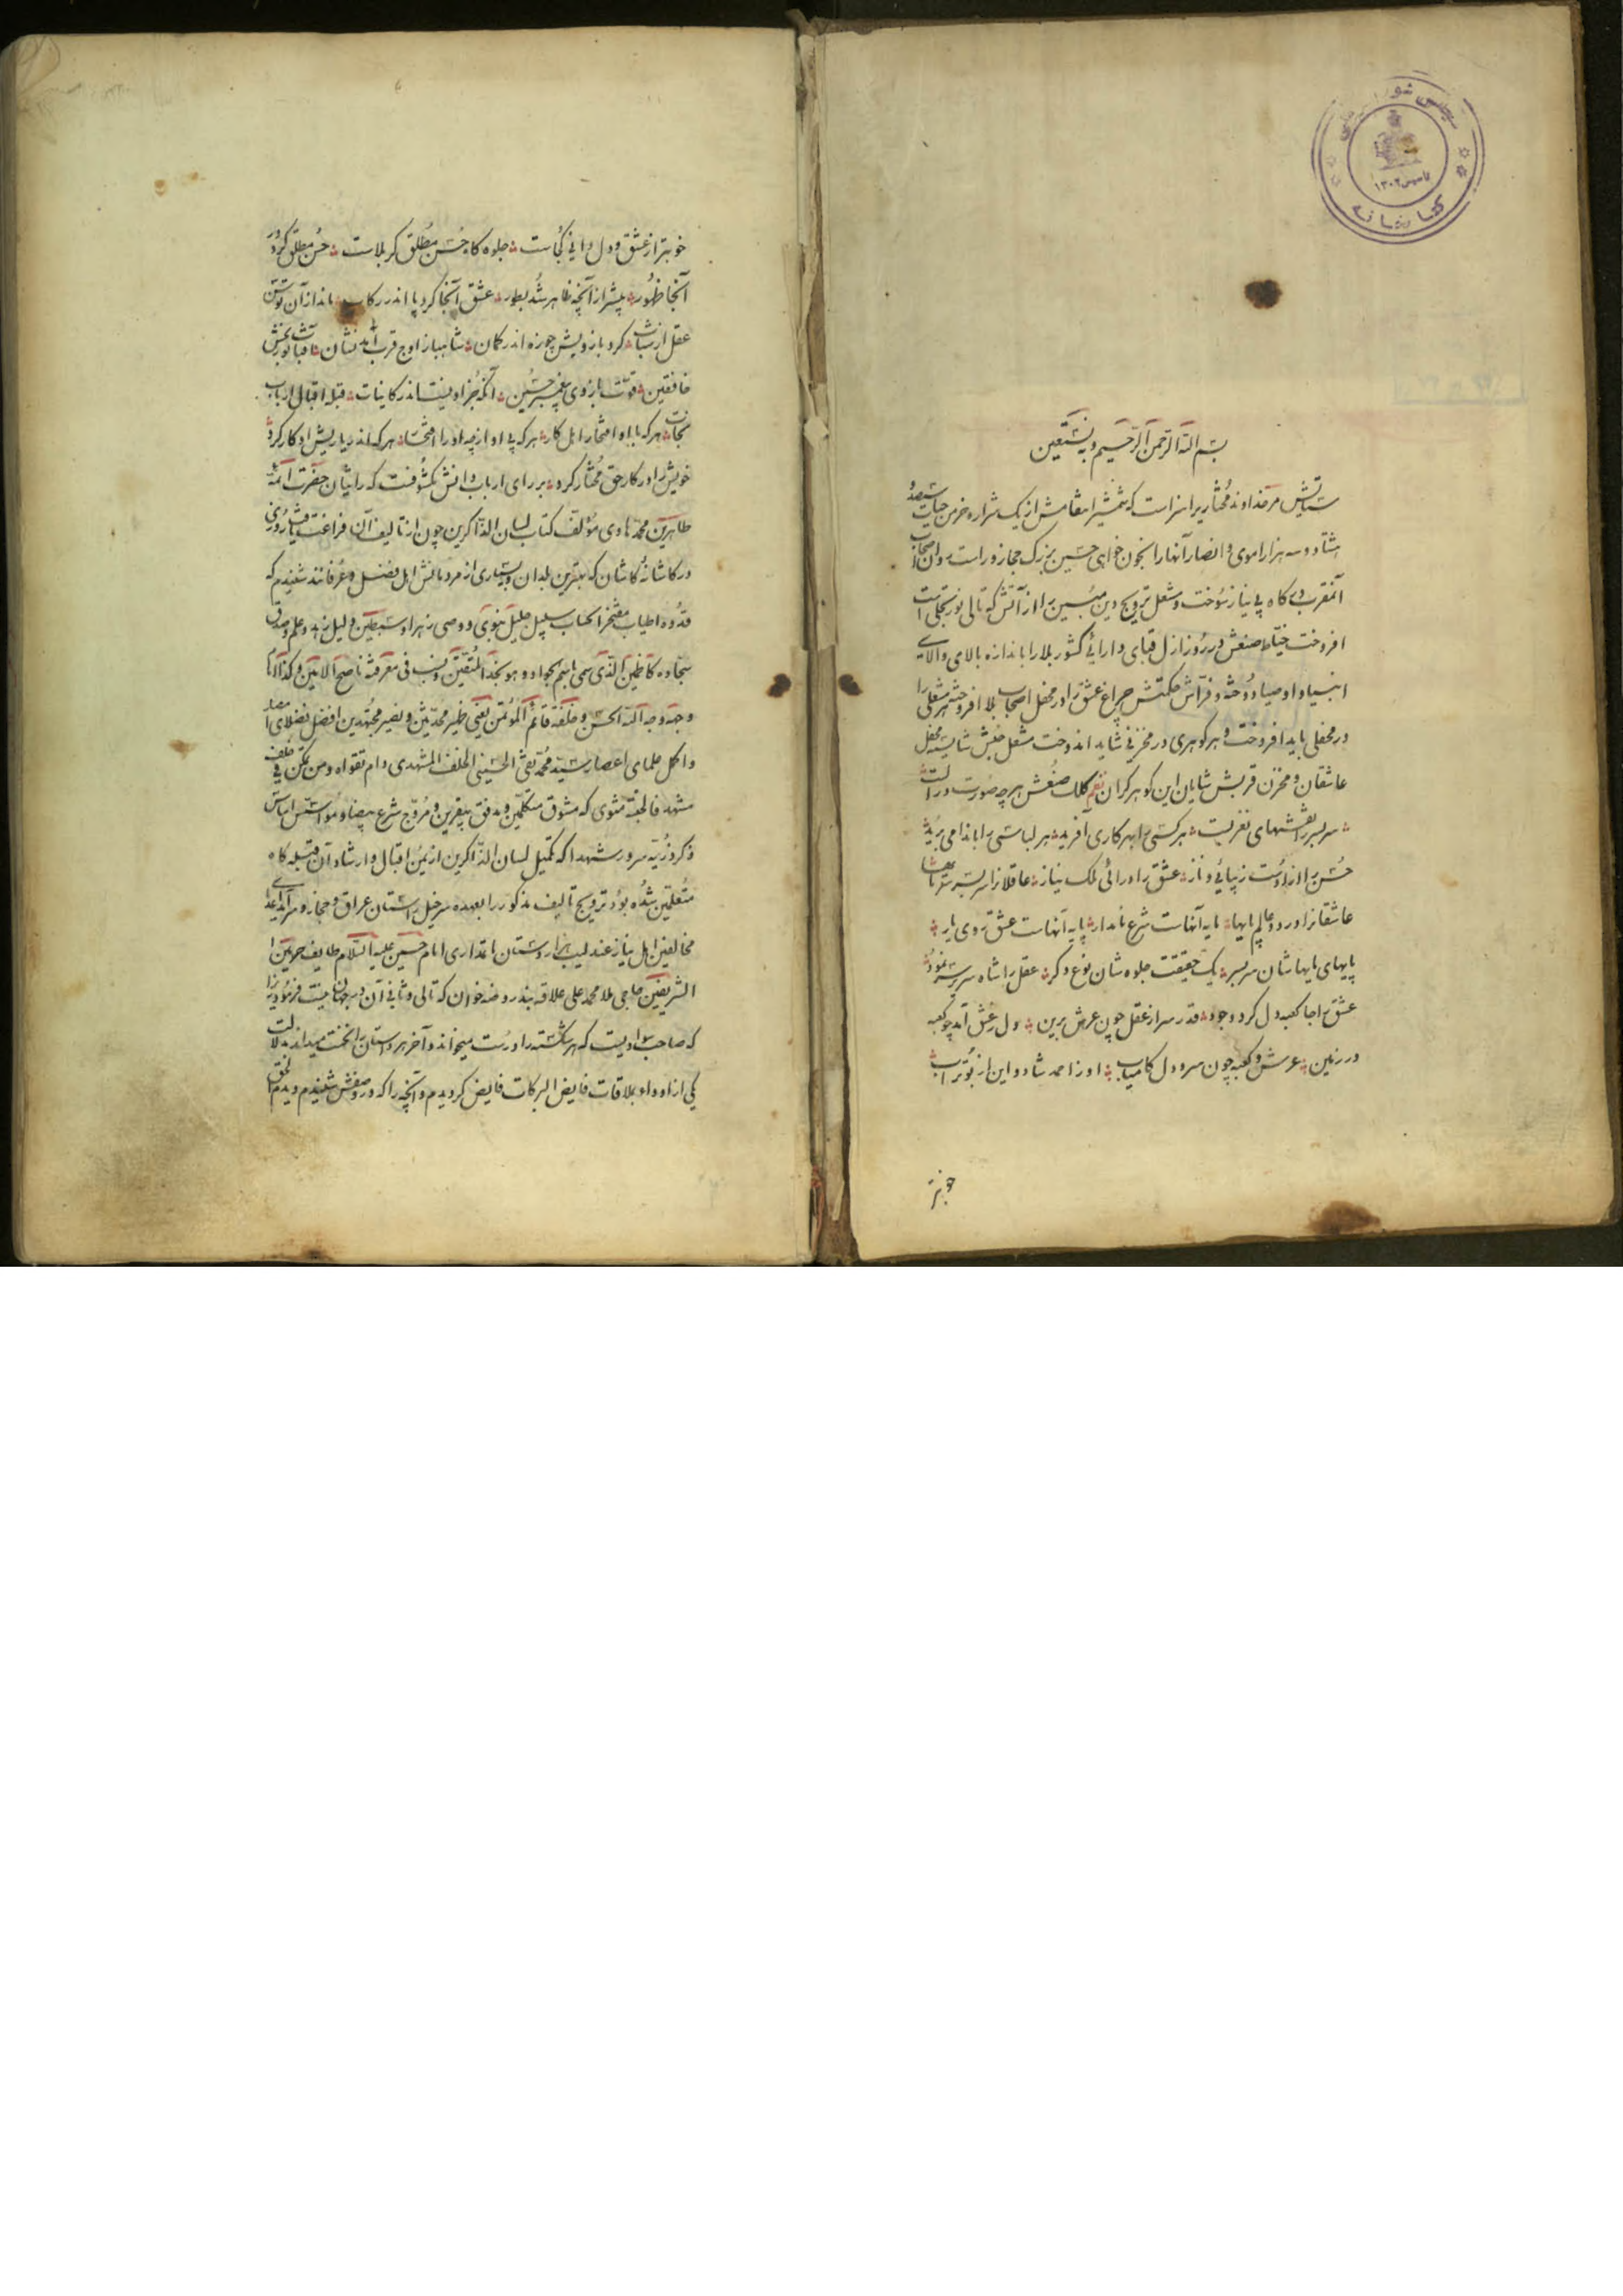 بسم الله الرحمن الرحیم و به نستعین
ستایش مر خداوند مختاریرا سزاست که شمشیر انتقامش از یک شراره خرمن حیات ششصد و
هشتاد و سه هزار اموی و انصار آنها را بخون خواهی حسین بزرگ حجاز و راست روان اصحاب
آنمقرب درگاه بی نیاز سوخت و مشعل ترویج دین مبین را از آتش که تالی نور تجلی است
افروخت خیاط صنعش در روز ازل قبای دارائی کشور بلا را باندازه بالای والای
انبیا و اوصیا دوخته و فراش حکمتش چراغ عشق را در محفل اصحاب بلا افروخته هر مشعلی را
در محفلی باید افروخت و هر گوهری در مخزنی شاید اندوخت مشعل عشقش شایسته محفل
عاشقان و مخزن قربش شایان این گوهر گران نظم کلک صنعش هر چه صورت در الست
سر بسر نقشهای نغز بست هر کسی را بهر کاری آفرید هر لباسی را باندامی برید
حسن را از اوست زیبائی و ناز عشق را دارائی ملک نیاز عاقلانرا سر بسر
عاشقانرا در دو عالم پایها پایه آنهاست شرع نامدار پایه آنهاست عشق روی یار
پایهای پایهاشان سر بسر یک حقیقت جلوه شان نوع دگر عقل را شاه سریر سر نمود
عشق را جا کعبه دل کرد وجود قدر سر از عقل چون عرش برین دل ز عشق آمد چو کعبه
در زمین عرش و کعبه چون سر و دل کامیاب او ز احمد شاد و این از بوتراب
خوبتر
خوبتر از عشق و دل دانی کجاست جلوه گاه حسن مطلق کربلاست حسن مطلق کرد در
آنجا ظهور بیشتر از آنچه ظاهر شد بطور عشق آنجا کرد پا اندر رکاب ماند از آن توسن
عقل از شتاب کرد بازویش چو زه اندر کمان شاهباز اوج قرب آمد نشان آفتاب نوربخش
خافقین قوت بازوی پیغمبر حسین آنکه جز او نیست اندر کاینات قبله اقبال ارباب
نجات هر که با او افتخار اهل کار هر که بی او از چه او را افتخار هر که اندر یاریش او کار کرد
خویش را در کار حق مختار کرد بر رای ارباب دانش مکشوفست که راثیان حضرت ائمه
طاهرین محمد هادی مؤلف کتاب لسان الذاکرین چون از تالیف آن فراغت یافت روزی
در کاشانه کاشان که بهترین بلدان و بسیاری از مردمانش اهل فضل و عرفانند شنیدم که
قدوه اطیاب مفتخر انتساب سلیل جلیل نبوی و وصی زهرا و سبطین دلیل زهد و علم و صدق
سجاد و کاظمین الذی سمی باسم الجواد و هو بجد المتقین و نسب فی معرفته ناصح الامین و کذا الامام
وجه وجه الله الحسن و خلفه قائم المؤتمن یعنی ظهیر محدثین و نصیر مجتهدین افضل فضلای امصار
و اکمل علمای اعصار سید محمد تقی الحسینی الخلف المشهدی دام تقواه و من تمکن فی خلف
مشهد فالجنة مثوی که مشوق متکلمین و مدقق بیقرین و مروج شرع بیضا و مؤسس اساس
ذکر و رثیه سرور شهدا که تکمیل لسان الذاکرین از یمن اقبال و ارشاد آن قبله گاه
متعلمین شده بود ترویج تالیف مذکور را بعهده سرخیل راستان عراق و حجاز و سرآمد
مخالفین اهل نیاز عندلیب هزار دستان تعزیه داری امام حسین علیه السلام طایف حرمین
الشریفین حاجی ملا محمد علی علاقه بند روضه خوان که تالی و ثانی آن در جهان نیست فرموده
که صاحب سوادیست که هر شکسته را درست میخواند و آخر هر داستان را نخست میداند
یکی از اوداء بملاقات فایض البرکات فایض گردیدم و آنچه را که در وصفش شنیدم دیدم الحق
مجلس شورای ملی
تاسیس ۱۳۰۲
کتابخانه